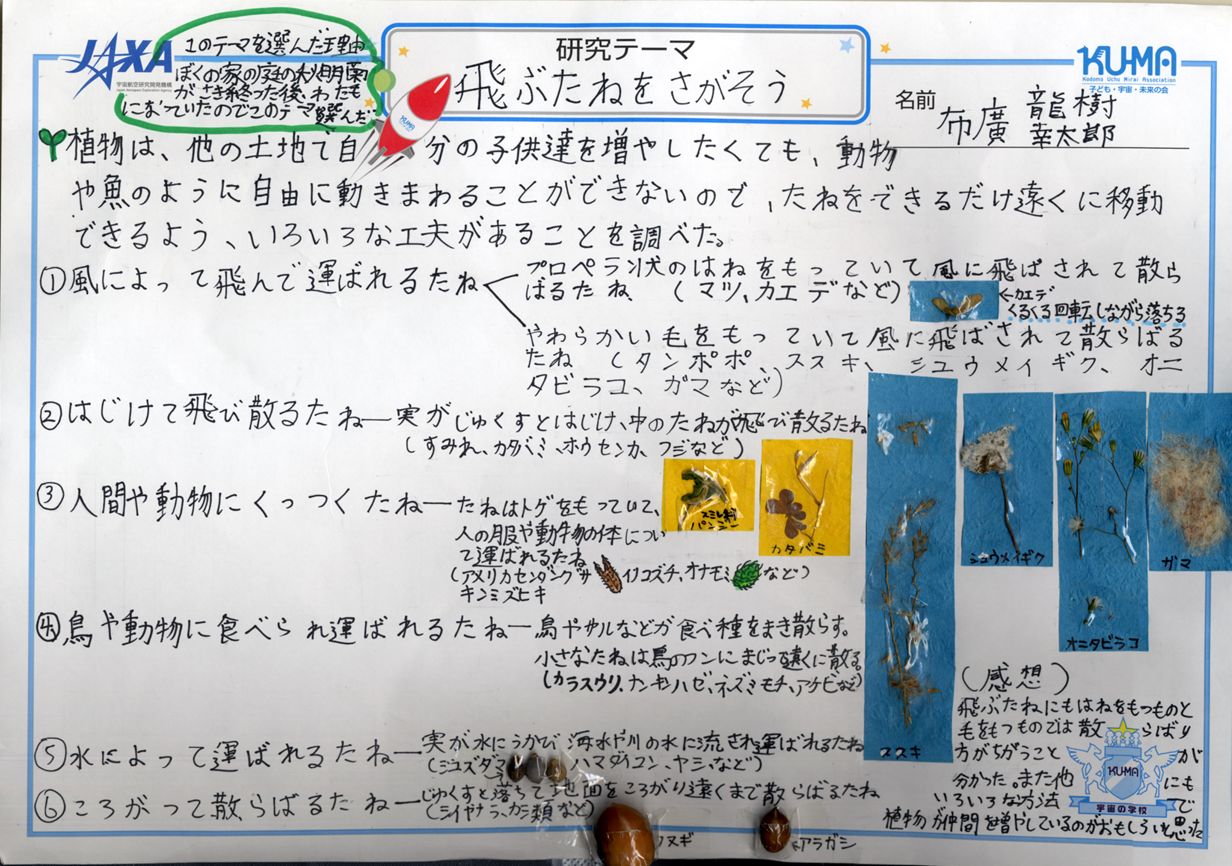 JAXA
宇宙航空研究開発機構
Japan Aerospace Exploration Agency
このテーマを選んだ理由
ぼくの家の庭の秋明菊
がさき終った後、わたも
になっていたのでこのテーマ選んだ
研究テーマ
飛ぶたねをさがそう
KUMA
Kodomo Uchu Mirai Association
子ども・宇宙・未来の会
名前
布廣 龍樹
幸太郎
KUMA
植物は、他の土地で自分の子供達を増やしたくても、動物
や魚のように自由に動きまわることができないので、たねをできるだけ遠くに移動
できるよう、いろいろな工夫があることを調べた。
①風によって飛んで運ばれるたね
プロペラ状のはねをもっていて風に飛ばされて散ら
ばるたね、(マツ、カエデなど)
←カエデ
くるくる回転しながら落ちる
やわらかい毛をもっていて風に飛ばされて散らばる
たね (タンポポ、ススキ、シュウメイギク、オニ
タビラコ、ガマなど)
②はじけて飛び散るたね―実がじゅくすとはじけ、中のたねが飛び散るたね
(すみれ、カタバミ、ホウセンカ、フジなど)
③人間や動物にくっつくたね―たねはトゲをもっていて、
人の服や動物の体につい
て運ばれるたね
(アメリカセンダングサ イノコズチ、オナモミ など)
キンミズヒキ
パンジー
カタバミ
ススキ
シュウメイギク
オニタビラコ
ガマ
④鳥や動物に食べられ運ばれるたね―鳥やサルなどが食べ種をまき散らす。
小さなたねは鳥のフンにまじって遠くに散る。
(カラスウリ、ナンキンハゼ、ネズミモチ、アケビなど)
⑤水によって運ばれるたね―実が水にうかび 海水や川の水に流され運ばれるたね
(ジュズダマ ハマダイコン、ヤシ、など)
⑥ころがって散らばるたね―じゅくすと落ちて地面をころがり遠くまで散らばるたね
(シイヤナラ、カシ類など)
ヌギ
アラガシ
(感想)
飛ぶたねにもはねをもつものと
毛をもつものでは散らばり
方がちがうことが
分かった。また他にも
いろいろな方法で
植物が仲間を増やしているのがおもしろいと思った
KUMA
宇宙の学校